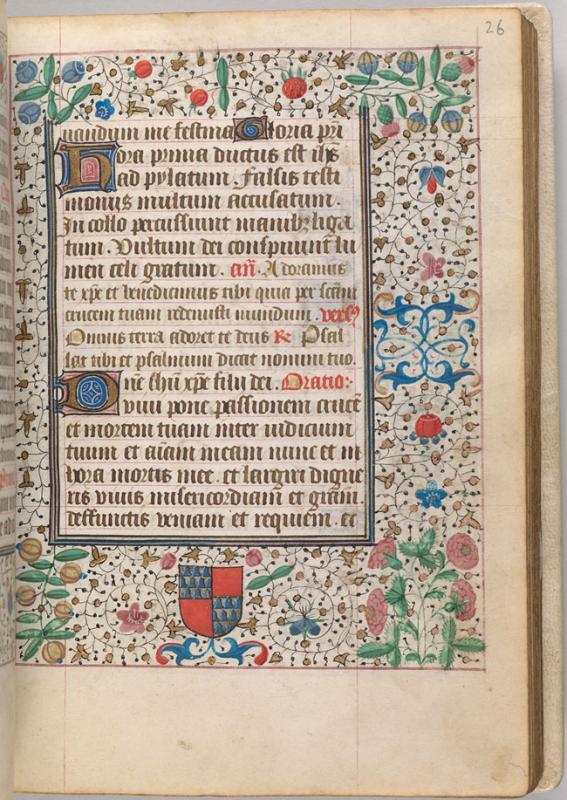 26
uandum me festina Gloria pri
Hora prima ductus est ihs
ad pylatum . falsis testi
moniis multum accusatum .
In collo percussiunt manibz liga
tum . Vultum dei conspuiunt lu
men celi gratum . an . Adoramus
te xpe et benedicimus tibi quia per scam
crucem tuam redemisti mundum . vers
Omnis terra adoret te deus R Psal
lat tibi et psalmum dicat nomini tuo .
Dne ihu xpe fili dei . Oratio :
viui pone passionem cruce
et mortem tuam inter iudicium
tuum et aiam meam nunc et in
hora mortis mee . et largiri digne
ris viuis misericordiam et gram .
deffunctis veniam et requiem . et